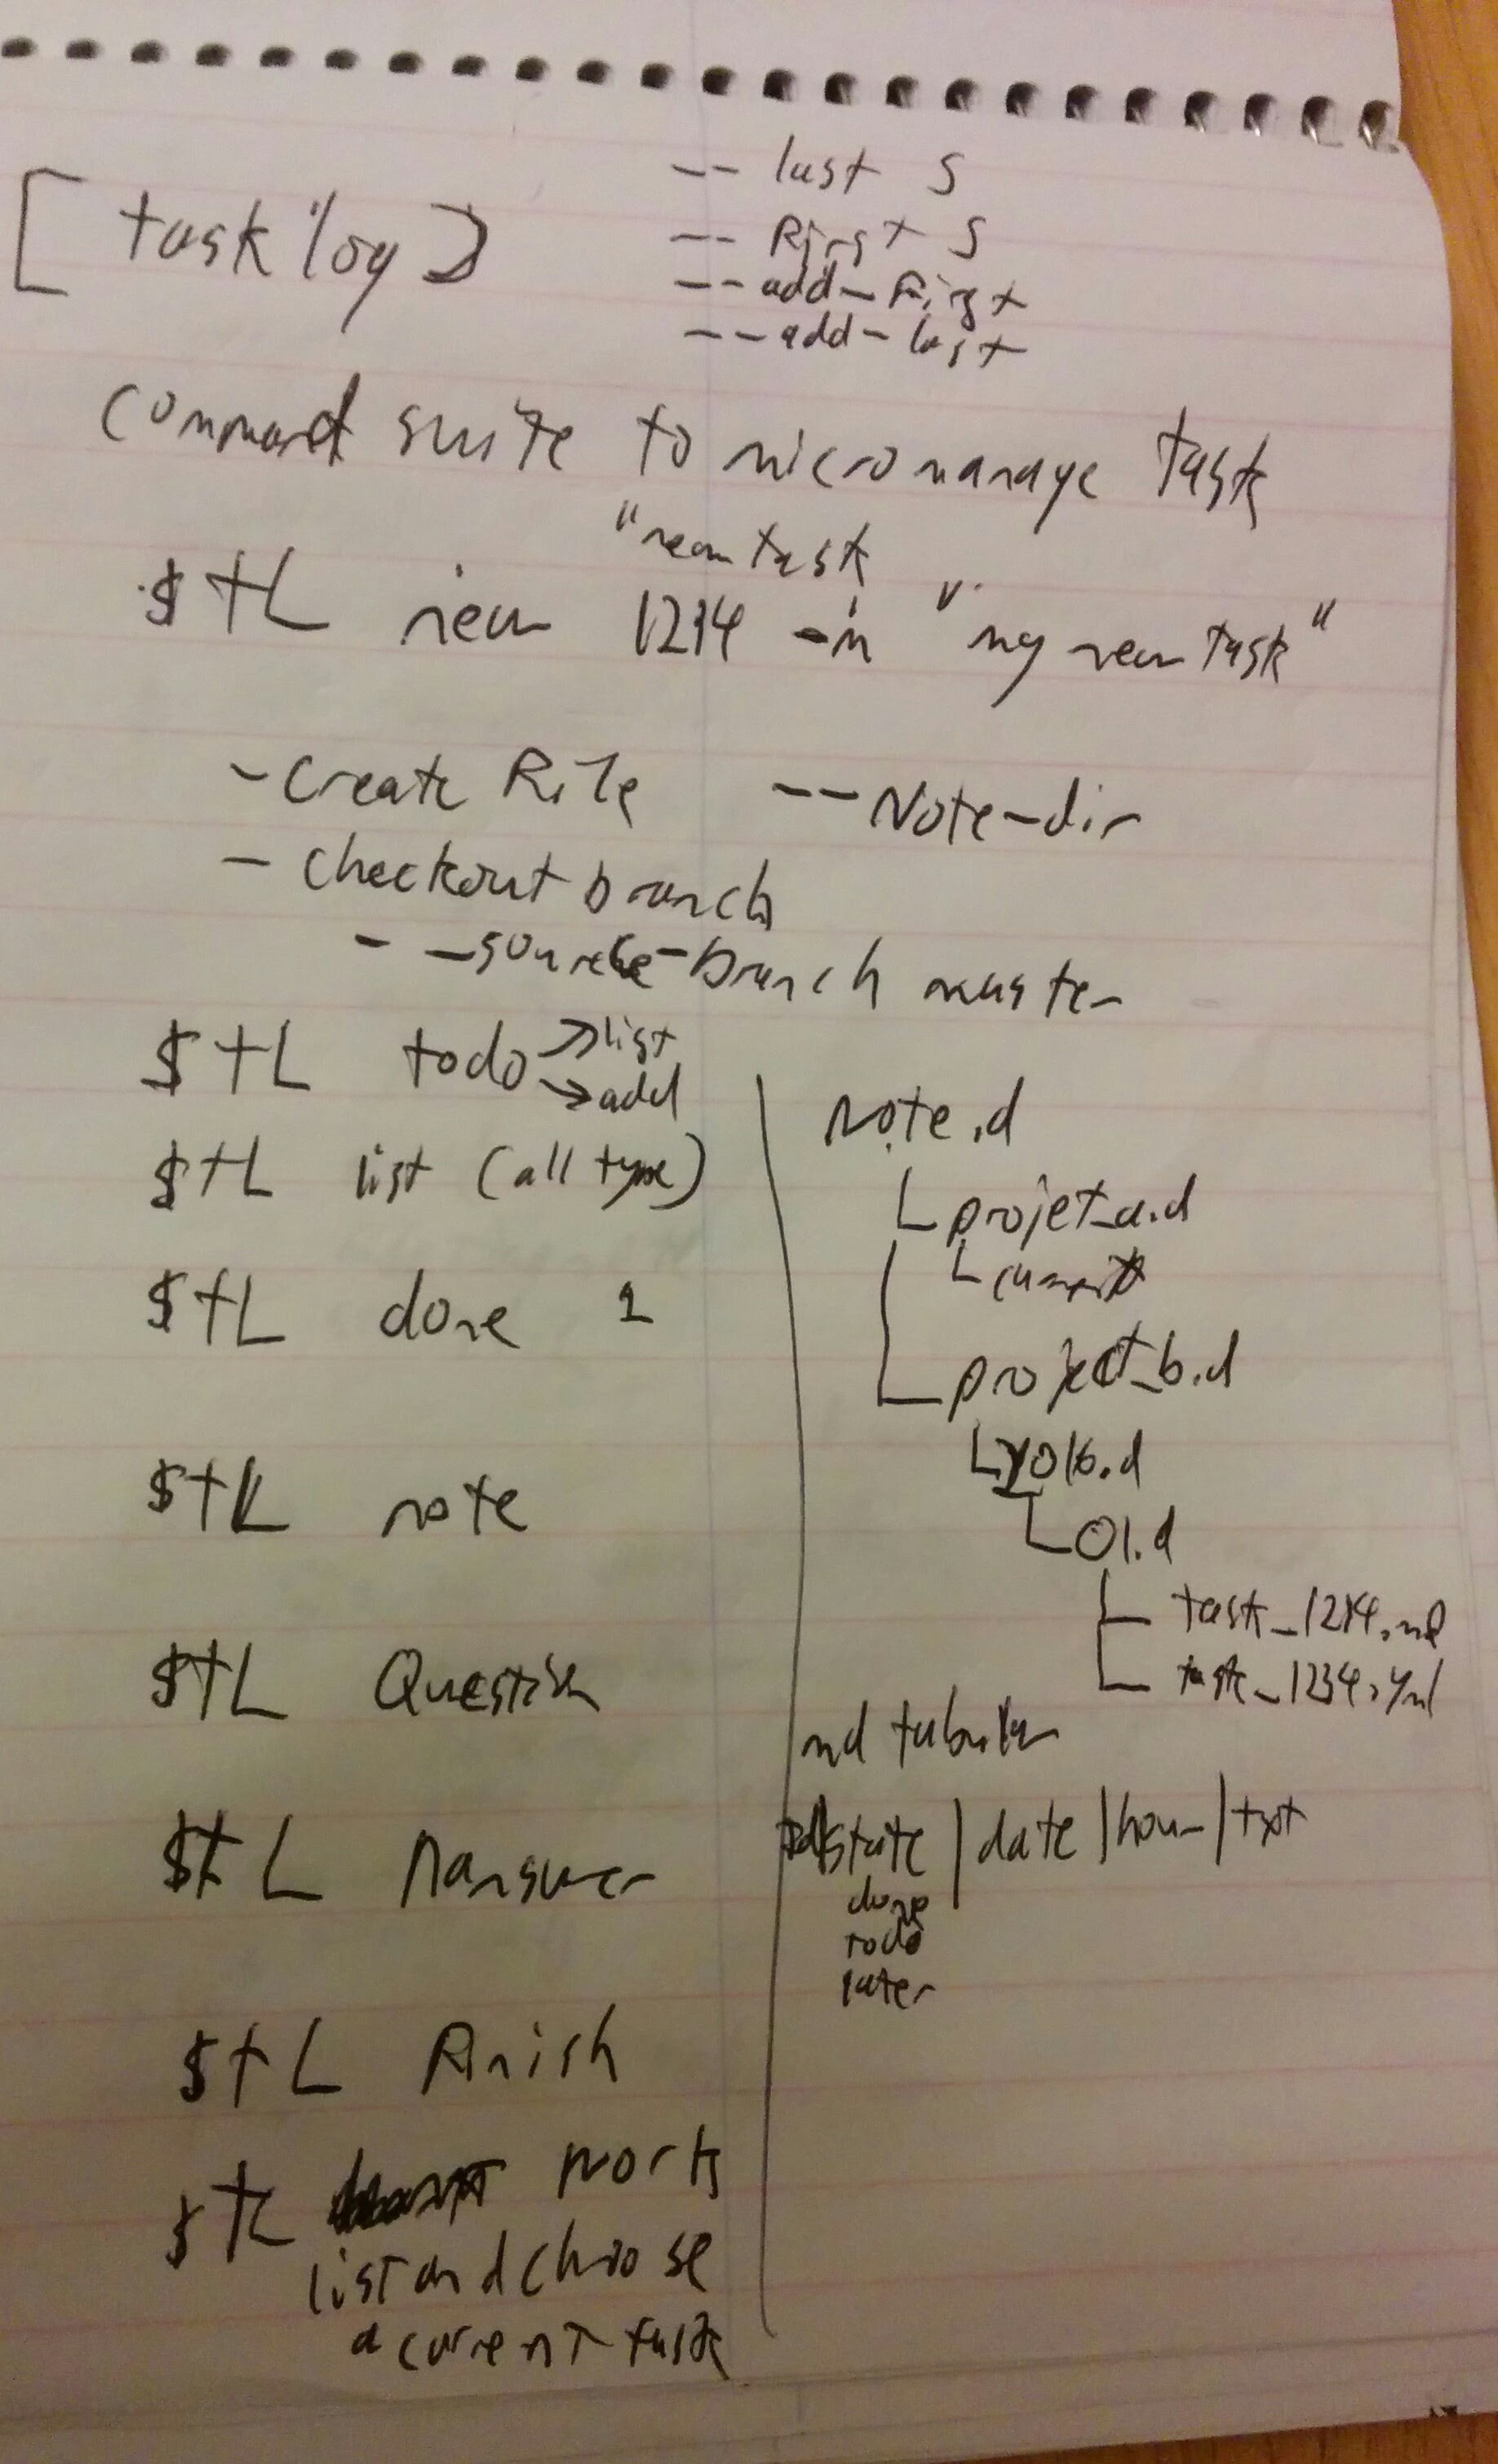 [task log]
-- last 5
-- First 5
-- add-First
-- add-last
command suite to micromanage task
"new task
$ tL new 1234 -m "my new task"
- Create File --Note-dir
- Checkout branch
--source-branch master
$ tL todo → list
→ add
$ tL list (all type)
$ tL done 1
$ tL note
$ tL Question
$ tL answer
$ tL Finish
$ tL work
list and choose
a current task
Note.d
projet_a.d
current
project_b.d
2016.d
01.d
task_1234.md
task_1234.yml
md tabular
state | date | hour | txt
done
todo
later